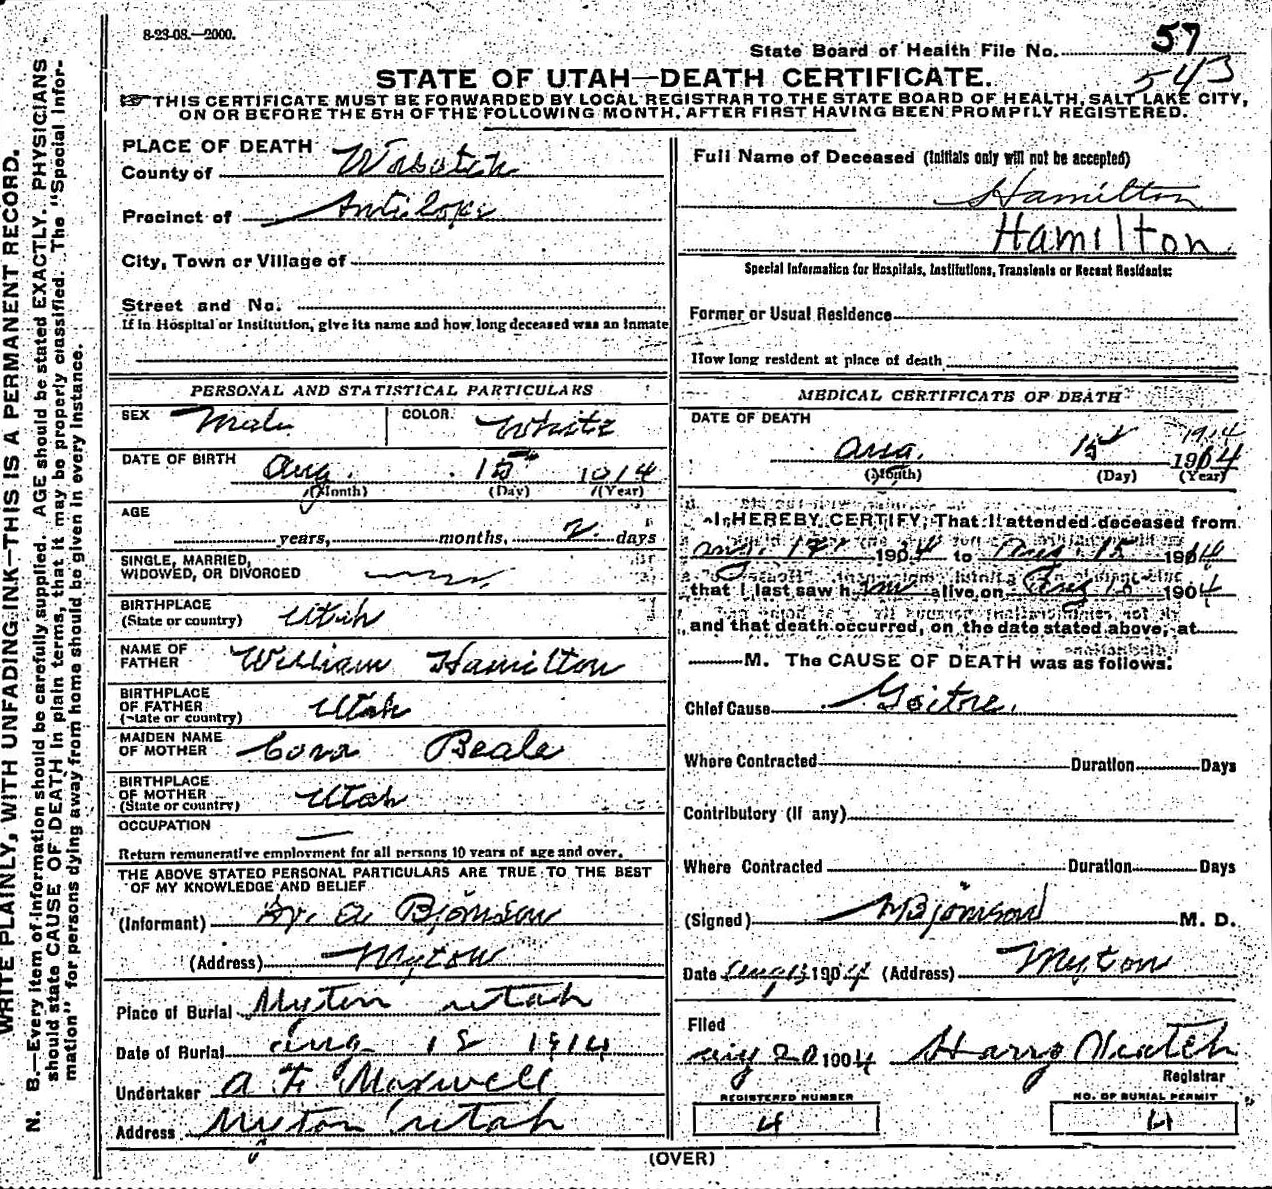 8-23-08.—2000.
State Board of Health File No. 57
543
STATE OF UTAH—DEATH CERTIFICATE.
THIS CERTIFICATE MUST BE FORWARDED BY LOCAL REGISTRAR TO THE STATE BOARD OF HEALTH, SALT LAKE CITY,
ON OR BEFORE THE 5TH OF THE FOLLOWING MONTH, AFTER FIRST HAVING BEEN PROMPTLY REGISTERED.
WRITE PLAINLY, WITH UNFADING INK—THIS IS A PERMANENT RECORD.
N. B.—Every item of information should be carefully supplied. AGE should be stated EXACTLY. PHYSICIANS
should state CAUSE OF DEATH in plain terms, that it may be properly classified. The "Special Infor-
mation" for persons dying away from home should be given in every instance.
PLACE OF DEATH
County of Wasatch
Precinct of Antilope
City, Town or Village of
Street and No.
If in Hospital or Institution, give its name and how long deceased was an inmate
PERSONAL AND STATISTICAL PARTICULARS
SEX Male COLOR White
DATE OF BIRTH Aug. 15 1914
(Month) (Day) (Year)
AGE
years, months, 2 days
SINGLE, MARRIED,
WIDOWED, OR DIVORCED
BIRTHPLACE
(State or country) Utah
NAME OF
FATHER William Hamilton
BIRTHPLACE
OF FATHER
(State or country) Utah
MAIDEN NAME
OF MOTHER Cora Beale
BIRTHPLACE
OF MOTHER
(State or country) Utah
OCCUPATION
Return remunerative employment for all persons 10 years of age and over.
THE ABOVE STATED PERSONAL PARTICULARS ARE TRUE TO THE BEST
OF MY KNOWLEDGE AND BELIEF
(Informant) Dr. A Björnson
(Address) Myton
Place of Burial Myton Utah
Date of Burial Aug 18 1914
Undertaker A F Maxwell
Address Myton Utah
Full Name of Deceased (Initials only will not be accepted)
Hamilton
Hamilton
Special Information for Hospitals, Institutions, Transients or Recent Residents:
Former or Usual Residence
How long resident at place of death
MEDICAL CERTIFICATE OF DEATH
DATE OF DEATH
1914
Aug. 15 1904
(Month) (Day) (Year)
I HEREBY CERTIFY, That I attended deceased from
Aug. 1904 to Aug. 15 1904
that I last saw him alive on Aug 15 1904
and that death occurred, on the date stated above, at
M. The CAUSE OF DEATH was as follows:
Chief Cause Goitre.
Where Contracted Duration Days
Contributory (if any)
Where Contracted Duration Days
(Signed) Björnson M. D.
Date Aug 1904 (Address) Myton
Filed
Aug 20 1904 Harry Veatch
Registrar
REGISTERED NUMBER
4
NO. OF BURIAL PERMIT
4
(OVER)